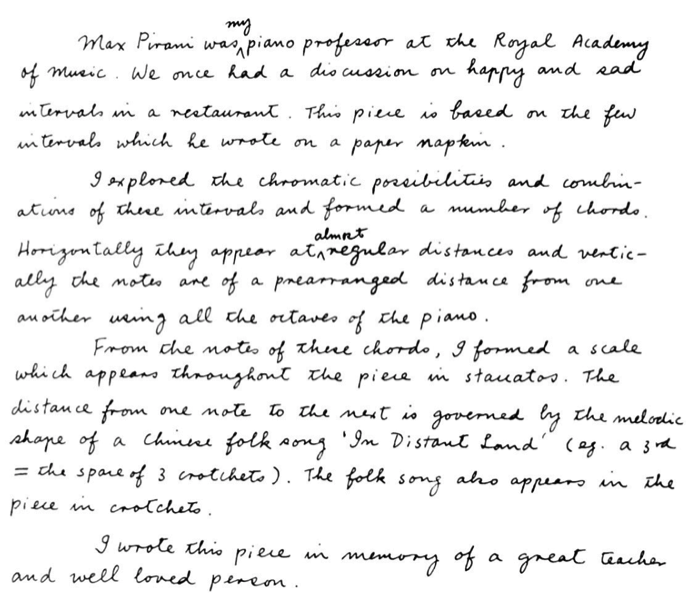 Max Pirani was my piano professor at the Royal Academy
of Music. We once had a discussion on happy and sad
intervals in a restaurant. This piece is based on the few
intervals which he wrote on a paper napkin.
I explored the chromatic possibilities and combin-
ations of these intervals and formed a number of chords.
Horizontally they appear at almost regular distances and vertic-
ally the notes are of a prearranged distance from one
another using all the octaves of the piano.
From the notes of these chords, I formed a scale
which appears throughout the piece in staccatos. The
distance from one note to the next is governed by the melodic
shape of a Chinese folk song 'In Distant Land' (eg. a 3rd
= the space of 3 crotchets). The folk song also appears in the
piece in crotchets.
I wrote this piece in memory of a great teacher
and well loved person.